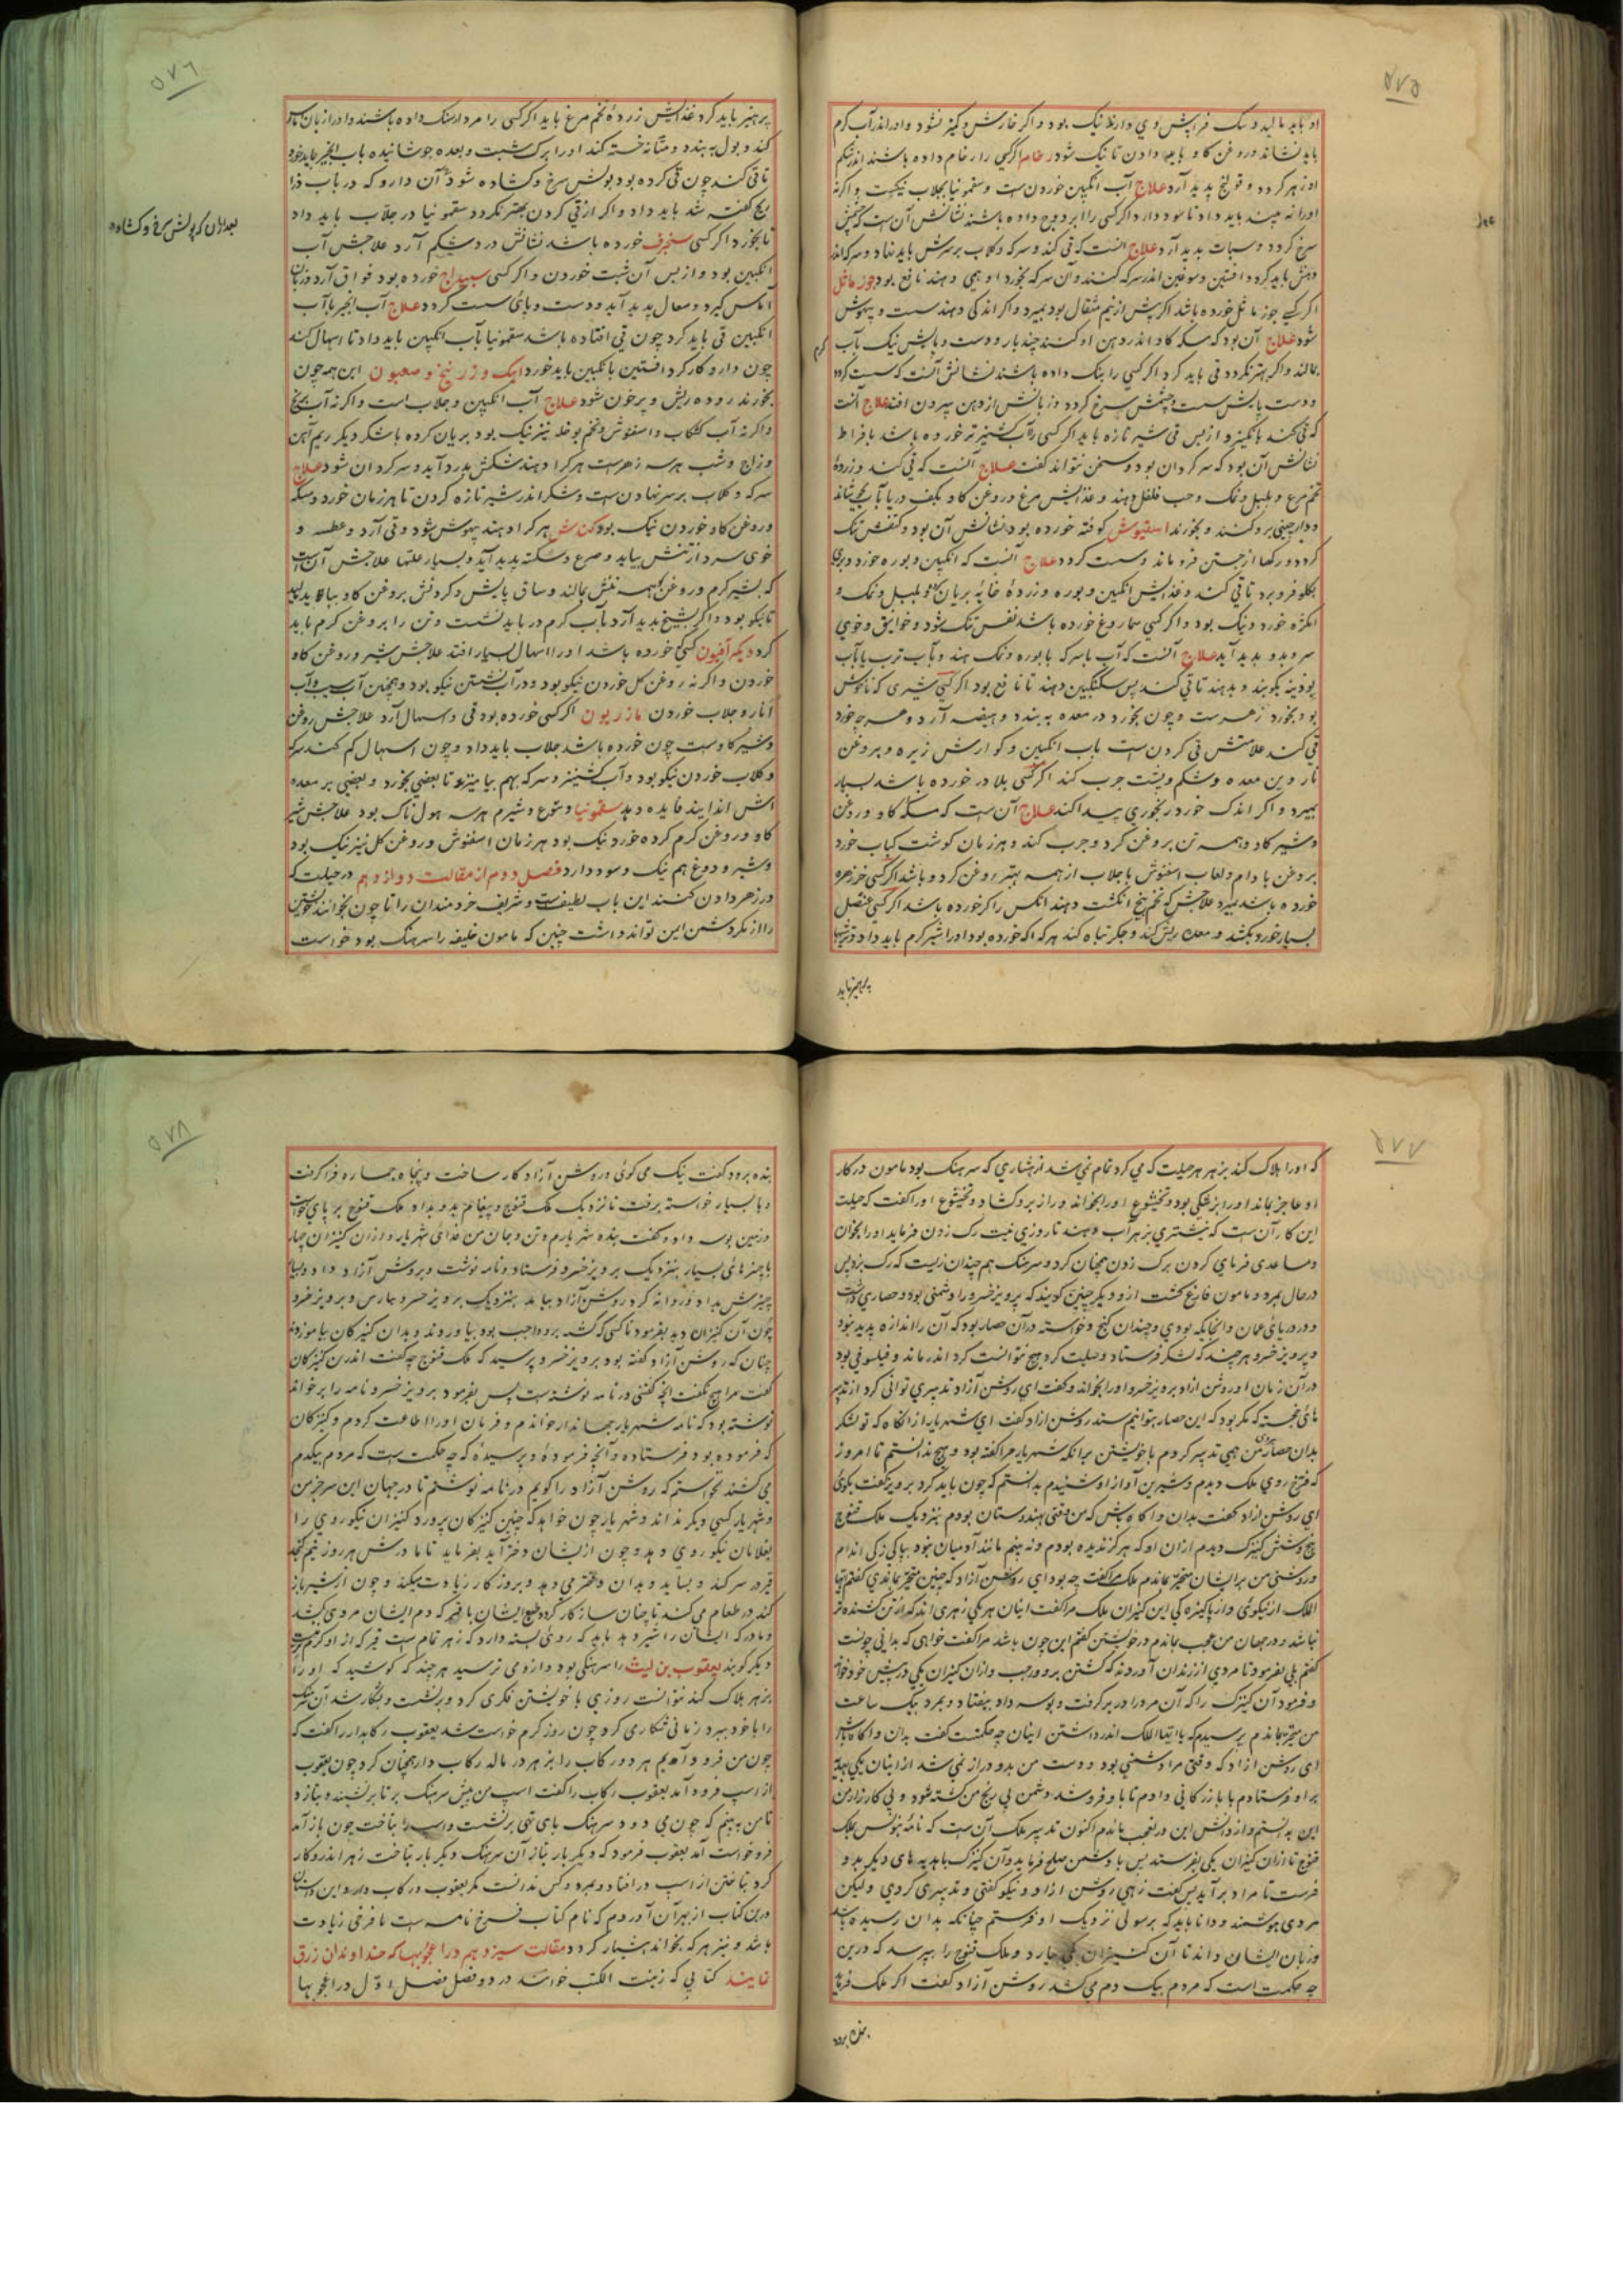 ۵۷۵
او باید مالید و سک فرایش وی دارند نیک بود و اگر خارش و کیز نشود و او را اندر آب کرم
باید نشاند و روغن کاو دادن تا نیک شود رخام اگر کسی را رخام داده باشند اندر شکم
او زهر کردد و قولنج پدید آرد علاج آب انکبین خوردن ست و سقمونیا بجلاب نیکست و اگر نه
سرخ کردد و سبات پدید آرد علاج آنست که قی کند و سرکه و کلاب بر سرش باید نهاد و سرکه اندر
دهنش باید کرد و افنتین اندر سرکه کنند و آن سرکه بخورد او همی دهند نافع بود جوز ماثل
اگر کسی جوز ماثل خورده باشد اگر پیش از نیم مثقال بود بمیرد و اگر اندکی دهند سست و بیهوش
شود علاج آن بود که مسکه کاو اندر دهن او کنند چند بار و دست و پایش نیک بآب کرم
بمالند و اگر بهتر نکردد قی باید کرد اگر کسی را بنک داده باشند نشانش آنست که سست کردد
و دست و پایش سست و چشمش سرخ کردد و زبانش از دهن بیرون افتد علاج آنست
که قی کند بانکبین و از پس قی شیر تازه باید اگر کسی را آب کشنیز تر خورده باشد بافراط
نشانش آن بود که سرکردان بود و سخن نتواند کفت علاج آنست که قی کند و زرده
تخم مرغ و پلپل و نمک و حب فلفل دهند و غذایش مرغ و روغن کاو
و دارچینی برو کنند و بخورند اسقیوش کوفته خورده بود نشانش آن بود و کنفش تنک
کردد و رکها از جستن فرو ماند و سست کردد علاج آنست که انکبین و بوره خورد
بکلو فرو برد تا قی کند و غذایش انکبین و بوره و زرده خایه بریان کرده و پلپل و نمک و
انکژه خورد و نیک بود و اگر کسی سماروغ خورده باشد نفس تنک شود و خوانیق و خوی
سرد پدید آید علاج آنست که آب باسرکه با بوره و نمک دهند و بآب ترب یا آب
پودینه بکوبند و بدهند تا قی کند پس سکنکبین دهند تا نافع بود اگر کسی شیری که ناخوش
بود بخورد زهرست و چون بخورد در معده ببندد و هیضه آرد و هرچه خورد
قی کند علامتش قی کردن ست باب انکبین و کوارش زیره و بروغن
ناردین معده و شکم و پشت چرب کند اگر کسی بلادر خورده باشد بسیار
بمیرد و اگر اندک خورد رنجوری پیدا کند علاج آن ست که مسکه کاو و روغن
و شیر کاو و همه تن بروغن کرد و چرب کند و هر زمان کوشت کباب خورد
بروغن بادام و لعاب اسفوش با جلاب از همه بهتر روغن کردو باشد اگر کسی خرزهره
خورده باشد بمیرد علاجش که تخم پنج انکشت دهند انکس را که خورده باشد اگر کسی عنصل
بسیار خورد بکشد و معده ریش کند و جکر تباه کند هر که خورده بود او را شیر کرم باید داد
پرهیز باید
۵۷۶
پرهیز باید کرد غذایش زرده تخم مرغ باید اگر کسی را مردارسنک داده باشند او را زبان آماس
کند و بول ببندد و مثانه خسته کند او را برک شبت و بعده جوشانیده باب انجیر باید خورد
تا قی کند چون قی کرده بود بولش سرخ و کشاده شود آن دارو که در باب
کفته شد باید داد و اگر از قی کردن بهتر نکردد سقمونیا در جلاب باید داد
تا بخورد اگر کسی سنجرف خورده باشد نشانش درد شکم آرد علاجش آب
انکبین بود و از پس آن شبت خوردن و اگر کسی سپیداج خورده بود فواق آرد و زبان
آماس کیرد و سعال پدید آید و دست و پای سست کردد علاج آب انجیر با آب
انکبین قی باید کرد چون قی افتاده باشد سقمونیا بآب انکبین باید داد تا اسهال کند
چون دارو کار کرد افنتین بانکبین باید خورد آهک و زرنیخ و صعبون این همه چون
بخورند روده ریش و پرخون شود علاج آب انکبین و جلاب است و اگر نه آب برنج
و اگر نه آب کشکاب و اسفوش و تخم نیز نیک بود بریان کرده باشکر دیکر ریم آهن
و زاج و شب هر سه زهرست هر کرا دهند شکمش بدرد آید و سرکردان شود علاج
سرکه و کلاب بر سر نهادن ست و شکر اندر شیر تازه کردن تا هر زمان خورد و مسکه
و روغن کاو خوردن نیک بود کندش هر کرا دهند بیهوش شود و قی آرد و عطسه و
خوی سرد از تنش بیاید و صرع و سکته پدید آید و بسیار علتها علاجش آن ست
که بشیر کرم و روغن همه تنش بمالند و ساق پایش و کردنش بروغن کاو
تا نیکو بود و اگر تشنج پدید آرد بآب کرم در باید نشست و تن را بروغن کرم باید
کرد دیکر افیون کسی خورده باشد او را اسهال بسیار افتد علاجش شیر و روغن کاو
خوردن و اگر نه روغن کل خوردن نیکو بود و در آب نشستن نیکو بود و همچنین آب سیب و آب
انار و جلاب خوردن مازریون اگر کسی خورده بود قی و اسهال آرد علاجش روغن
و شیر کاوست چون خورده باشد جلاب باید داد و چون اسهال کم کند سرکه
و کلاب خوردن نیکو بود و آب کشنیز و سرکه بهم بیامیزند تا بعضی بخورد و بعضی بر معده
اش اندایند فایده دهد سقمونیا و شبرم هر سه هول ناک بود علاجش شیر
کاو و روغن کرم کرده خورد نیک بود هر زمان اسفنوش و روغن کل نیز نیک بود
و شیر و دوغ هم نیک و سود دارد فصل دوم از مقالت دوازدهم در حیلت که
در زهر دادن کنند این باب لطیف ست و شریف خردمندان را تا چون بخوانند خویشتن
را از مکر دشمن این تواند داشت چنین که مامون خلیفه را سرهنک بود خواست
بعد از آن که بولش سرخ و کشاده
۵۷۷
که او را هلاک کند بزهر هر حیلت که می کرد تمام نمی شد از هشیاری که سرهنک بود مامون در کار
او عاجز بماند او را پزشکی بود بختیشوع او را بخواند و راز برو کشاد و بختیشوع او را کفت که حیلت
این کار آن ست که نیشتری بزهر آب دهند تا روزی نیت رک زدن فرماید او را بخوان
و مساعدی فرمای کردن برک زدن همچنان کرد و سرهنک هم چندان زیست که رک بزد پس
در حال بمرد و مامون فارغ کشت از و دیکر چنین کویند که پرویز خسرو را دشمنی بود و حصاری داشت
در دریای عمان و انجایکه بودی و چندان کنج و خواسته در آن حصار بود که آن را اندازه پدید نبود
و پرویز خسرو هر چند که لشکر فرستاد و حیلت کرد هیچ نتوانست کرد اندر ماند و فیلسوفی بود
در آن زمان او روشن ازاد پرویز خسرو او را بخواند و کفت ای روشن آزاد تدبیری توانی کرد از تدبیر
های خجسته که مکر بود که این حصار بتوانیم ستد روشن ازاد کفت ای شهریار از انکاه که تو لشکر
بدان حصار بردی من همی تدبیر کردم با خویشتن برانکه شهریار مرا کفته بود و هیچ ندانستم تا امروز
که فرخ روی ملک دیدم و شیرین آواز او شنیدم بدانستم که چون باید کرد پرویز کفت بکوی
ای روشن ازاد کفت بدان و اکاه باش که من وقتی بهندوستان بودم بنزدیک ملک قنوج
پنج و شش کنیزک دیدم ازان او که هرکز ندیده بودم و نه بینم مانند آدمیان نبود بپاکیزکی اندام
و روشنی من بر ایشان متحیر بماندم ملک مرا کفت چه بود ای روشن آزاد که چنین متحیر بماندی کفتم ایها
الملک از نیکوی و از پاکیزه کی این کنیزان ملک مرا کفت اینان هر یکی زهری اند که از تن کشنده تر
نباشد و در جهان من عجب بماندم و خویشتن کفتم این چون باشد مرا کفت خواهی که بدانی چونست
کفتم بلی بفرمود تا مردی از زندان آوردند که کشتن برو و واجب و ازان کنیزان یکی در پیش خود خواند
و فرمود آن کنیزک را که آن مرد را در بر کرفت و بوسه داد بیفتاد و بمرد بیک ساعت
من متحیر بماندم پرسیدم که یا ایها الملک اندر داشتن اینان چه حکمتست کفت بدان و اکاه باش
ای روشن ازاد که وقتی مرا دشمنی بود و دست من بدو دراز نمی شد از اینان یکی بهدیه
بر او فرستادم با بازرکانی دادم تا باو فروشد دشمن بی رنج من کشته شود و بی کارزار من
این بدانستم و از دانش این در تعجب ماندم اکنون تدبیر ملک آن ست که نامه بنویس بملک
قنوج تا از آن کنیزان یکی بفرستد پس با دشمن صلح فرماید و آن کنیزک با هدیه های دیکر بدو
فرست تا مراد برآید پس کفت زهی روشن ازاد و نیکو کفتی و تدبیری کردی ولیکن
مردی هوشمند و دانا باید که برسولی نزدیک او فرستم چنانکه بدان رسیده باشد
و زبان ایشان داند تا آن کنیزان یکی بیارد و ملک قنوج را بپرسد که درین
چه حکمت است که مردم بیک دم می کشد روشن آزاد کفت اگر ملک فرماید
بنده برود
۵۷۸
بنده برود کفت نیک می کوئی و روشن آزاد کار ساخت و پنجاه جمازه فرا کرفت
و با بسیار خواسته برفت تا نزدیک ملک قنوج و پیغام بدو بداد ملک قنوج بر پای خواست
و زمین بوسه داد و کفت بنده شهریارم و تن و جان من فدای شهریار و ازان کنیزان چهار
با چیزهای بسیار بنزدیک پرویز خسرو فرستاد و نامه نوشت و بروشن آزاد داد و بسیار
چیزش بداد و روانه کرد روشن آزاد بیامد بنزدیک پرویز خسرو بپارس و پرویز خسرو
چون آن کنیزان دید بفرمود تا کسی که کشتن برو واجب بود بیاوردند و بدان کنیزکان بیاموزند
چنان که روشن آزاد کفته بود پرویز خسرو پرسید که ملک قنوج چه کفت اندرین کنیزکان
کفت مرا هیچ نکفت انچه کفتنی در نامه نوشته ست پس بفرمود پرویز خسرو نامه را برخواند
نوشته بود که نامه شهریار جهاندار خواندم و فرمان او را اطاعت کردم و کنیزکان
که فرموده بود فرستاده و آنچه فرموده و پرسیده که چه حکمت ست که مردم بیکدم
می کشند نخواستم که روشن آزاد را کویم در نامه نوشتم تا در جهان این سر جز من
و شهریار کسی دیکر نداند و شهریار چون خواهد که چنین کنیزکان پرورد کنیزان نیکوروی را
بغلامان نیکوروی دهد و چون از ایشان دختر آید بفرماید تا مادرش هر روز نیم کنجد
قیر در سر کند و بساید و بدان دختر می دهد و بروز کار زیادت میکند و چون از شیر باز
کند در طعام می کند تا چنان ساز کار کردد طبع ایشان با قیر که دم ایشان مردم می کشد
و مادر که ایشان را شیر دهد باید که روی بسته دارد که زهر تمام ست قیر که از او کریز نیست
دیکر کویند یعقوب بن لیث را سرهنکی بود و ازو می ترسید هر چند که کوشید که او را
بزهر هلاک کند نتوانست روزی با خویشتن فکری کرد و برنشست و بشکار شد آن سرهنک
را با خود ببرد زمانی شکاری کرد چون روز کرم خواست شد یعقوب رکابدار را کفت که
چون من فرود آیم هر دو رکاب را بزهر در مال رکاب دار همچنان کرد چون یعقوب
از اسب فرود آمد یعقوب رکاب را کفت اسب من پیش سرهنک بر تا برنشیند و بتازد
تا من ببینم که چون می دود سرهنک پای تهی برنشست و اسب را بتاخت چون باز آمد
فرود خواست آمد یعقوب فرمود که دیکر بار بتاز آن سرهنک دیکر بار بتاخت زهر اندرو کار
کرد بتاختن از اسب در افتاد و بمرد و کس ندانست مکر یعقوب و رکاب دار و این داستان
درین کتاب از بهر آن آوردم که نام کتاب فرخ نامه ست تا فرخی زیادت
باشد و نیز هر که بخواند هشیار کردد مقالت سیزدهم در اعجوبها که خداوندان زرق
نمایند کتابی که زینت الکتب خوانند در دو فصل فصل اول در اعجوبها